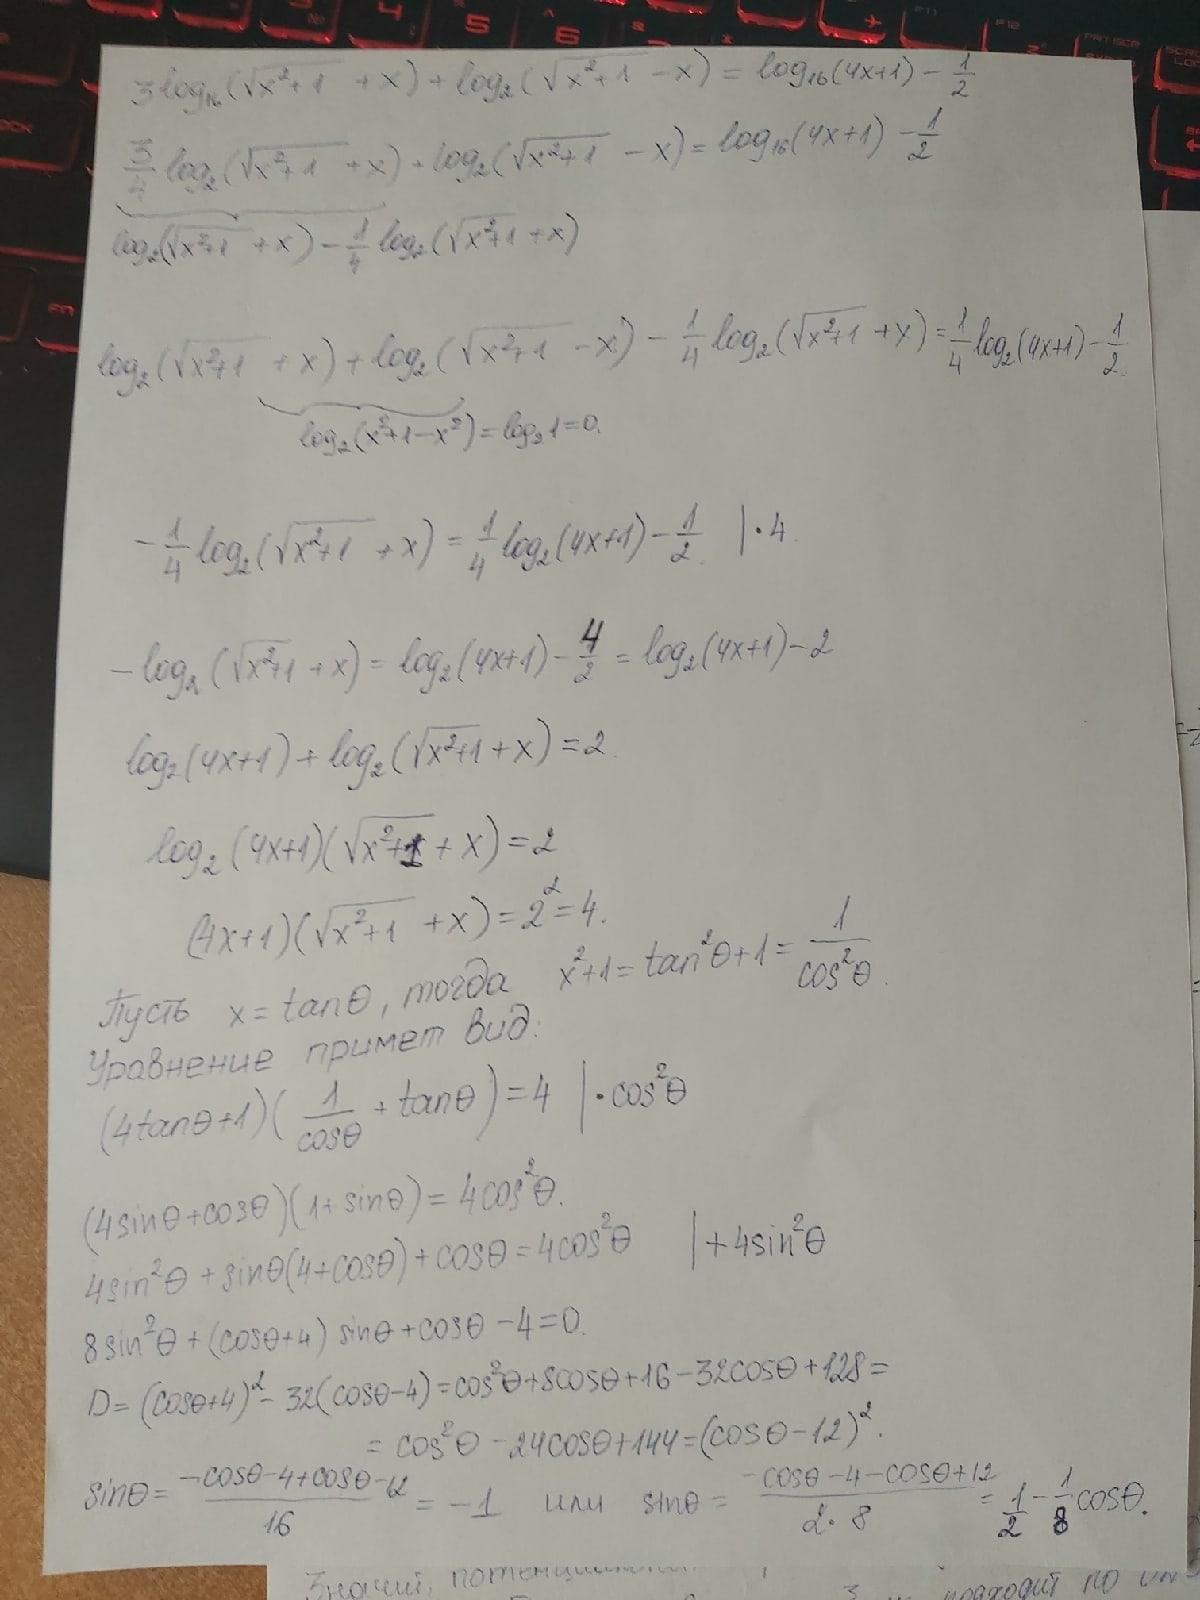 3log₁₆(√(x²+1) + x) + log₂(√(x²+1) − x) = log₁₆(4x+1) − 1/2
3/4 log₂(√(x²+1) + x) + log₂(√(x²+1) − x) = log₁₆(4x+1) − 1/2
log₂(√(x²+1) + x) − 1/4 log₂(√(x²+1) + x)
log₂(√(x²+1) + x) + log₂(√(x²+1) − x) − 1/4 log₂(√(x²+1) + x) = 1/4 log₂(4x+1) − 1/2.
log₂(x²+1−x²) = log₂1 = 0.
−1/4 log₂(√(x²+1) + x) = 1/4 log₂(4x+1) − 1/2. | · 4.
−log₂(√(x²+1) + x) = log₂(4x+1) − 4/2 = log₂(4x+1) − 2
log₂(4x+1) + log₂(√(x²+1) + x) = 2.
log₂(4x+1)(√(x²+1) + x) = 2
(4x+1)(√(x²+1) + x) = 2² = 4.
Пусть x = tanθ, тогда x²+1 = tan²θ+1 = 1/cos²θ.
Уравнение примет вид:
(4tanθ+1)(1/cosθ + tanθ) = 4 | · cos²θ
(4sinθ+cosθ)(1+sinθ) = 4cos²θ.
4sin²θ + sinθ(4+cosθ) + cosθ = 4cos²θ | + 4sin²θ
8sin²θ + (cosθ+4) sinθ + cosθ − 4 = 0.
D = (cosθ+4)² − 32(cosθ−4) = cos²θ+8cosθ+16−32cosθ+128 =
= cos²θ − 24cosθ+144 = (cosθ−12)².
sinθ = (−cosθ−4+cosθ−12)/16 = −1 или sinθ = (−cosθ−4−cosθ+12)/(2·8) = 1/2 − 1/8 cosθ.
Значит,
подходит по